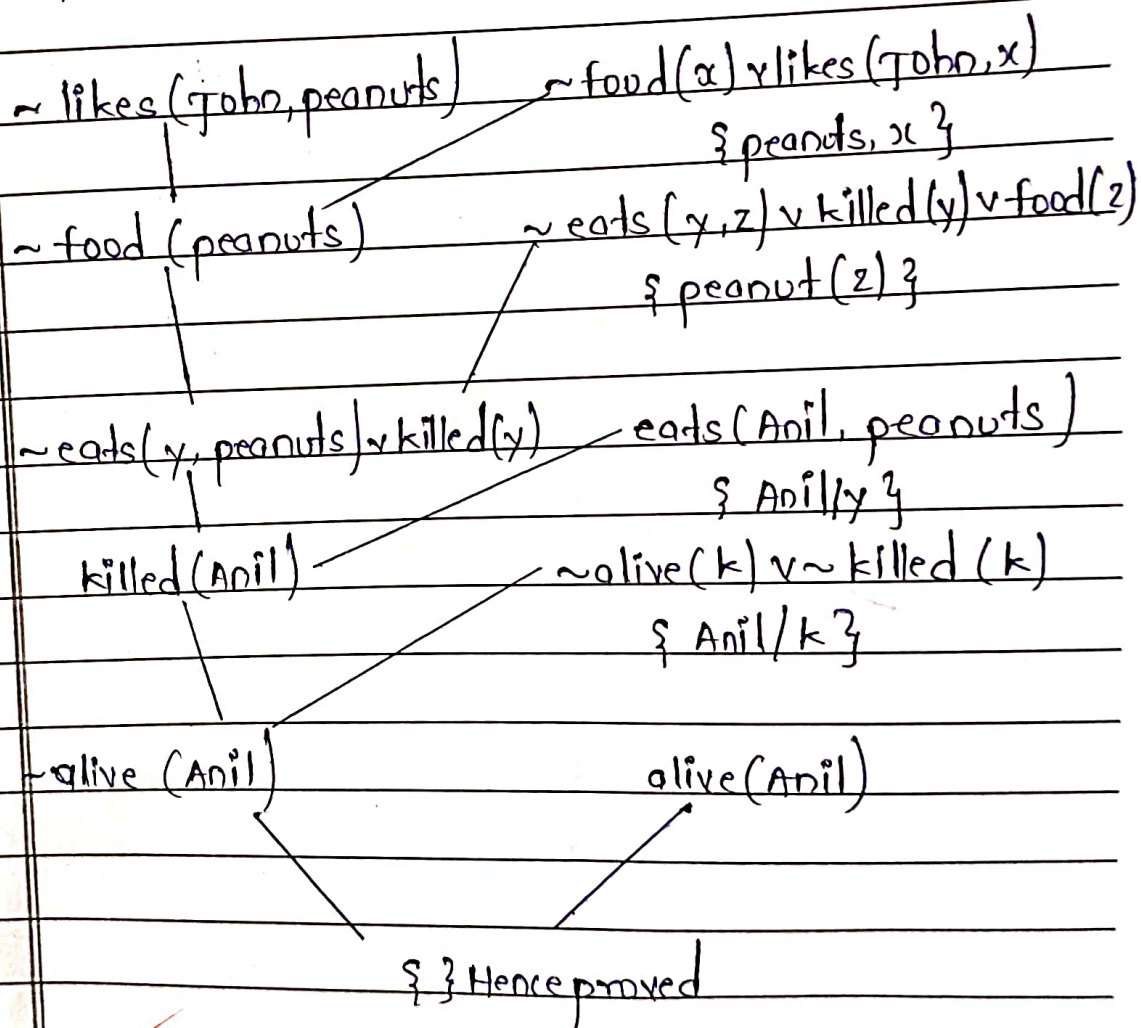 ~ likes (John, peanuts) ~ food(x) v likes (John, x)
{ peanuts, x }
~ food (peanuts) ~ eats (y, z) v killed (y) v food(z)
{ peanut (z) }
~ eats(y, peanuts) v killed(y) eats (Anil, peanuts)
{ Anil/y }
killed (Anil) ~alive (k) v ~ killed (k)
{ Anil/k }
~alive (Anil) alive (Anil)
{ } Hence proved